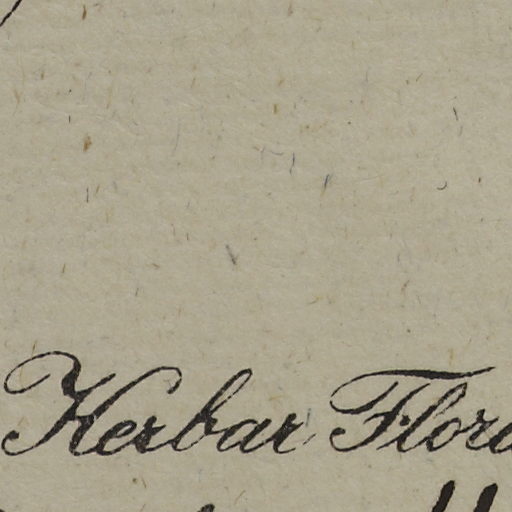 Herbar Flora